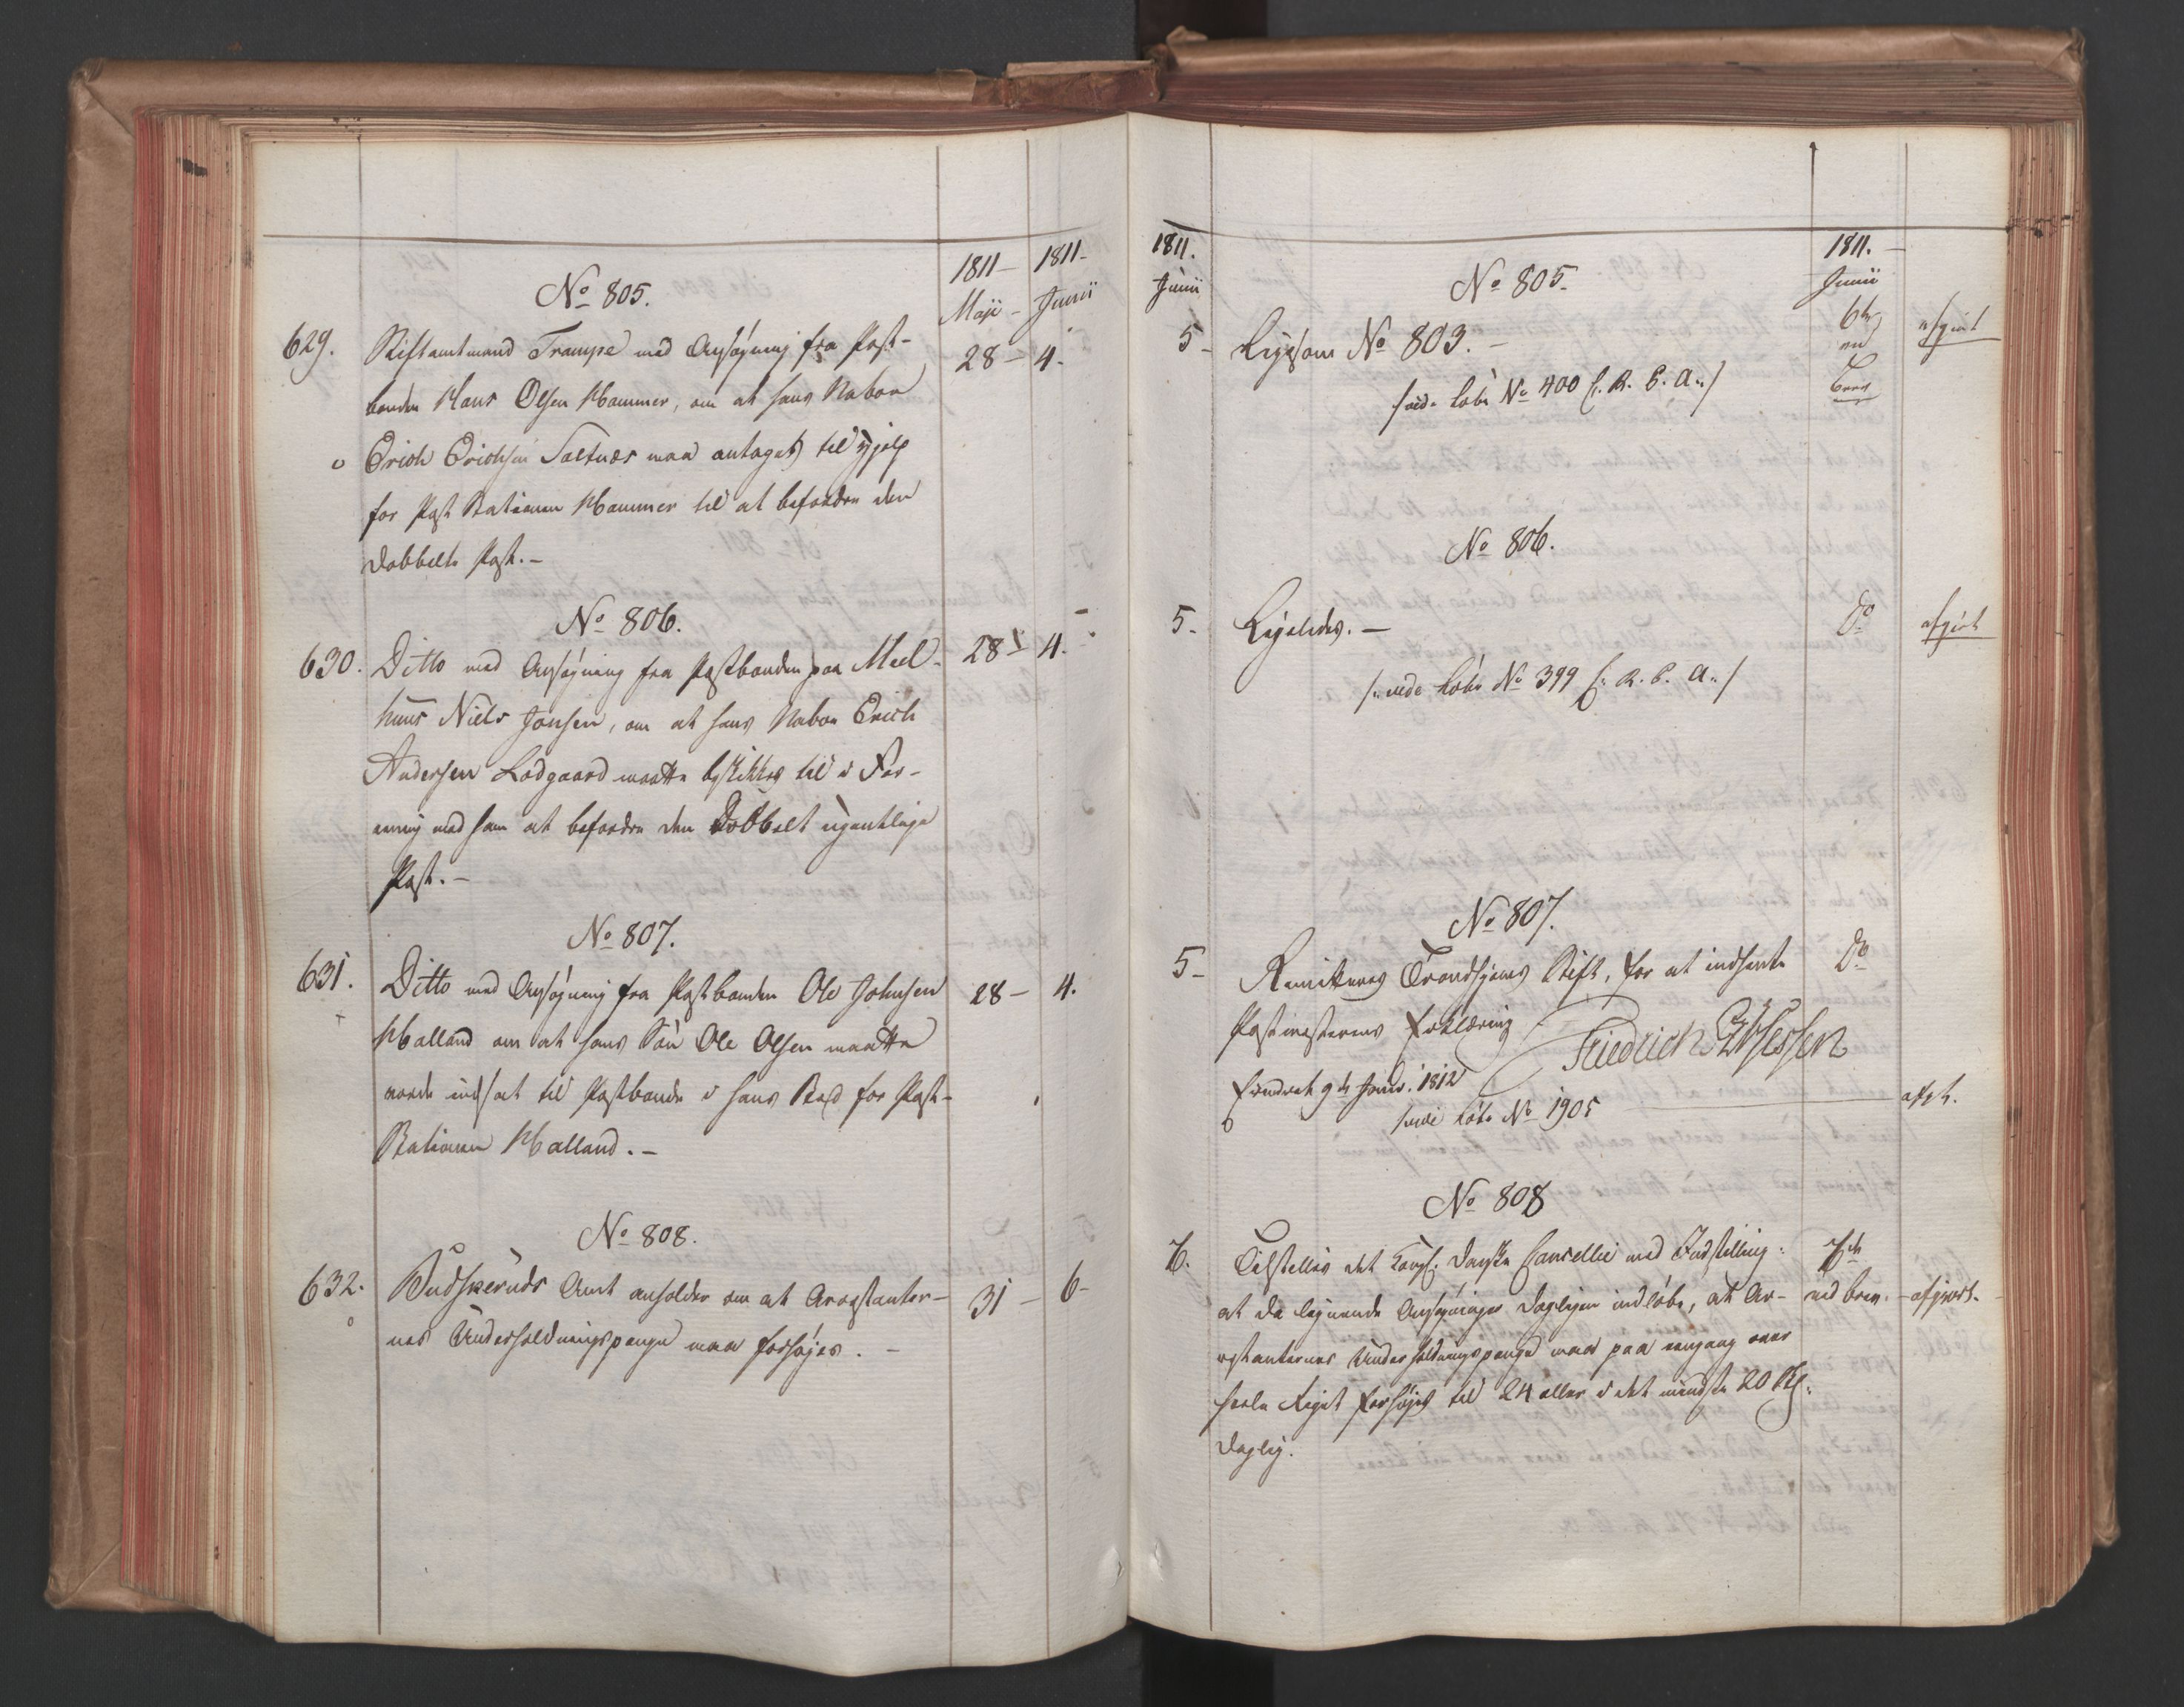 1811 — 1811 -
Maji - Junii
No 805.
629. Stiftamtmand Trampe med Ansøgning fra Post- 28 - 4.
bonden Hans Olsen Hammer, om at hans Naboe
Erich Erichsen Saltnes maa antages til Hjelp
for Post Stationen Hammer til at befordre den
dobbelte Post. -
No 806.
630. Ditto med Ansøgning fra Postbonden paa Meel- 28 - 4.
huus Niels Jonsen, om at hans Naboe Erich
Andersen Lodgaard maatte beskikkes til i For-
ening med ham at befordre den Dobbelt ugentlige
Post. -
No 807.
631. Ditto med Ansøgning fra Postbonden Ole Johnsen 28 - 4.
Halland om at hans Søn Ole Olsen maatte
vorde indsat til Postbonde i hans Sted for Post-
Stationen Halland. -
No 808.
632. Budskeruds Amt anholder om at Arrestanter- 31 - 6-
nes Underholdningspenge maa forhøjes. -
1811. 1811. -
Junii Junii
No 805.
5 - Ligesom No 803. - 6te afgiort
ved
Brev
/vide Løbe No 400 C. R. P. A../
No 806.
5. Ligeledes. - Do afgiort
/: vide Løbe No 399 C. R. P. A../
No 807.
5 - Remitteres Trondhjems Stift, for at indhente Do
Postmesterens Erklæring
Friedrich Ebbesen
Erindret 9de Janr. 1812
/vide Løbe No 1905 afgt.
No 808
6. Tilstilles det Kongl. Danske Cancellie med Indstilling: 7de
at da lignende Ansøgninger dagligen indløbe, at Ar- ved Brev. - afgiort.
restanternes Underholdningspenge maa paa eengang over
heele Riget forhøjes til 24 eller i det mindste 20 Sk.
daglig.